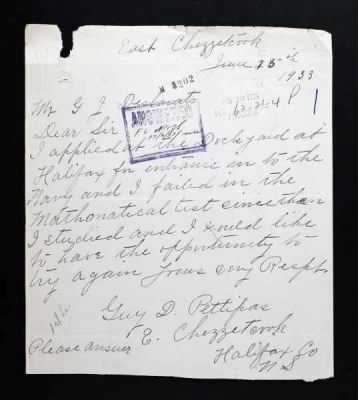 East Chezzetcook
June 25th
1933
M 3202
P
Mr G J Desbarats
Dear Sir
ANSWERED
I applied at the Dockyard at
Halifax for entranse in to the
Navy and I failed in the
Mathmatical test since than
I studied and I would like
to have the opportunity to
try again yours very Respt
Guy D. Pettipas
E. Chezzetcook
Please answer
Halifax Co
N S